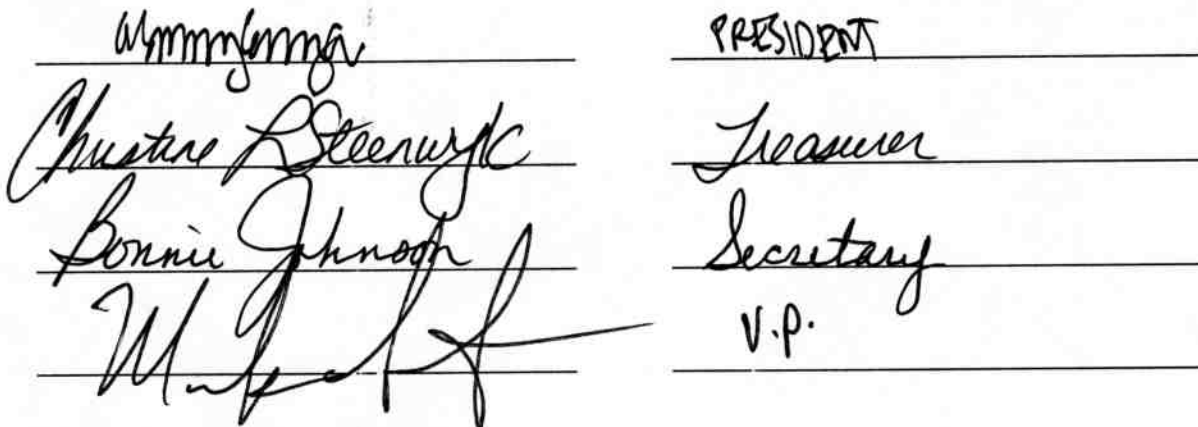 PRESIDENT
Christine L Steenwyk Treasurer
Bonnie Johnson Secretary
V.P.